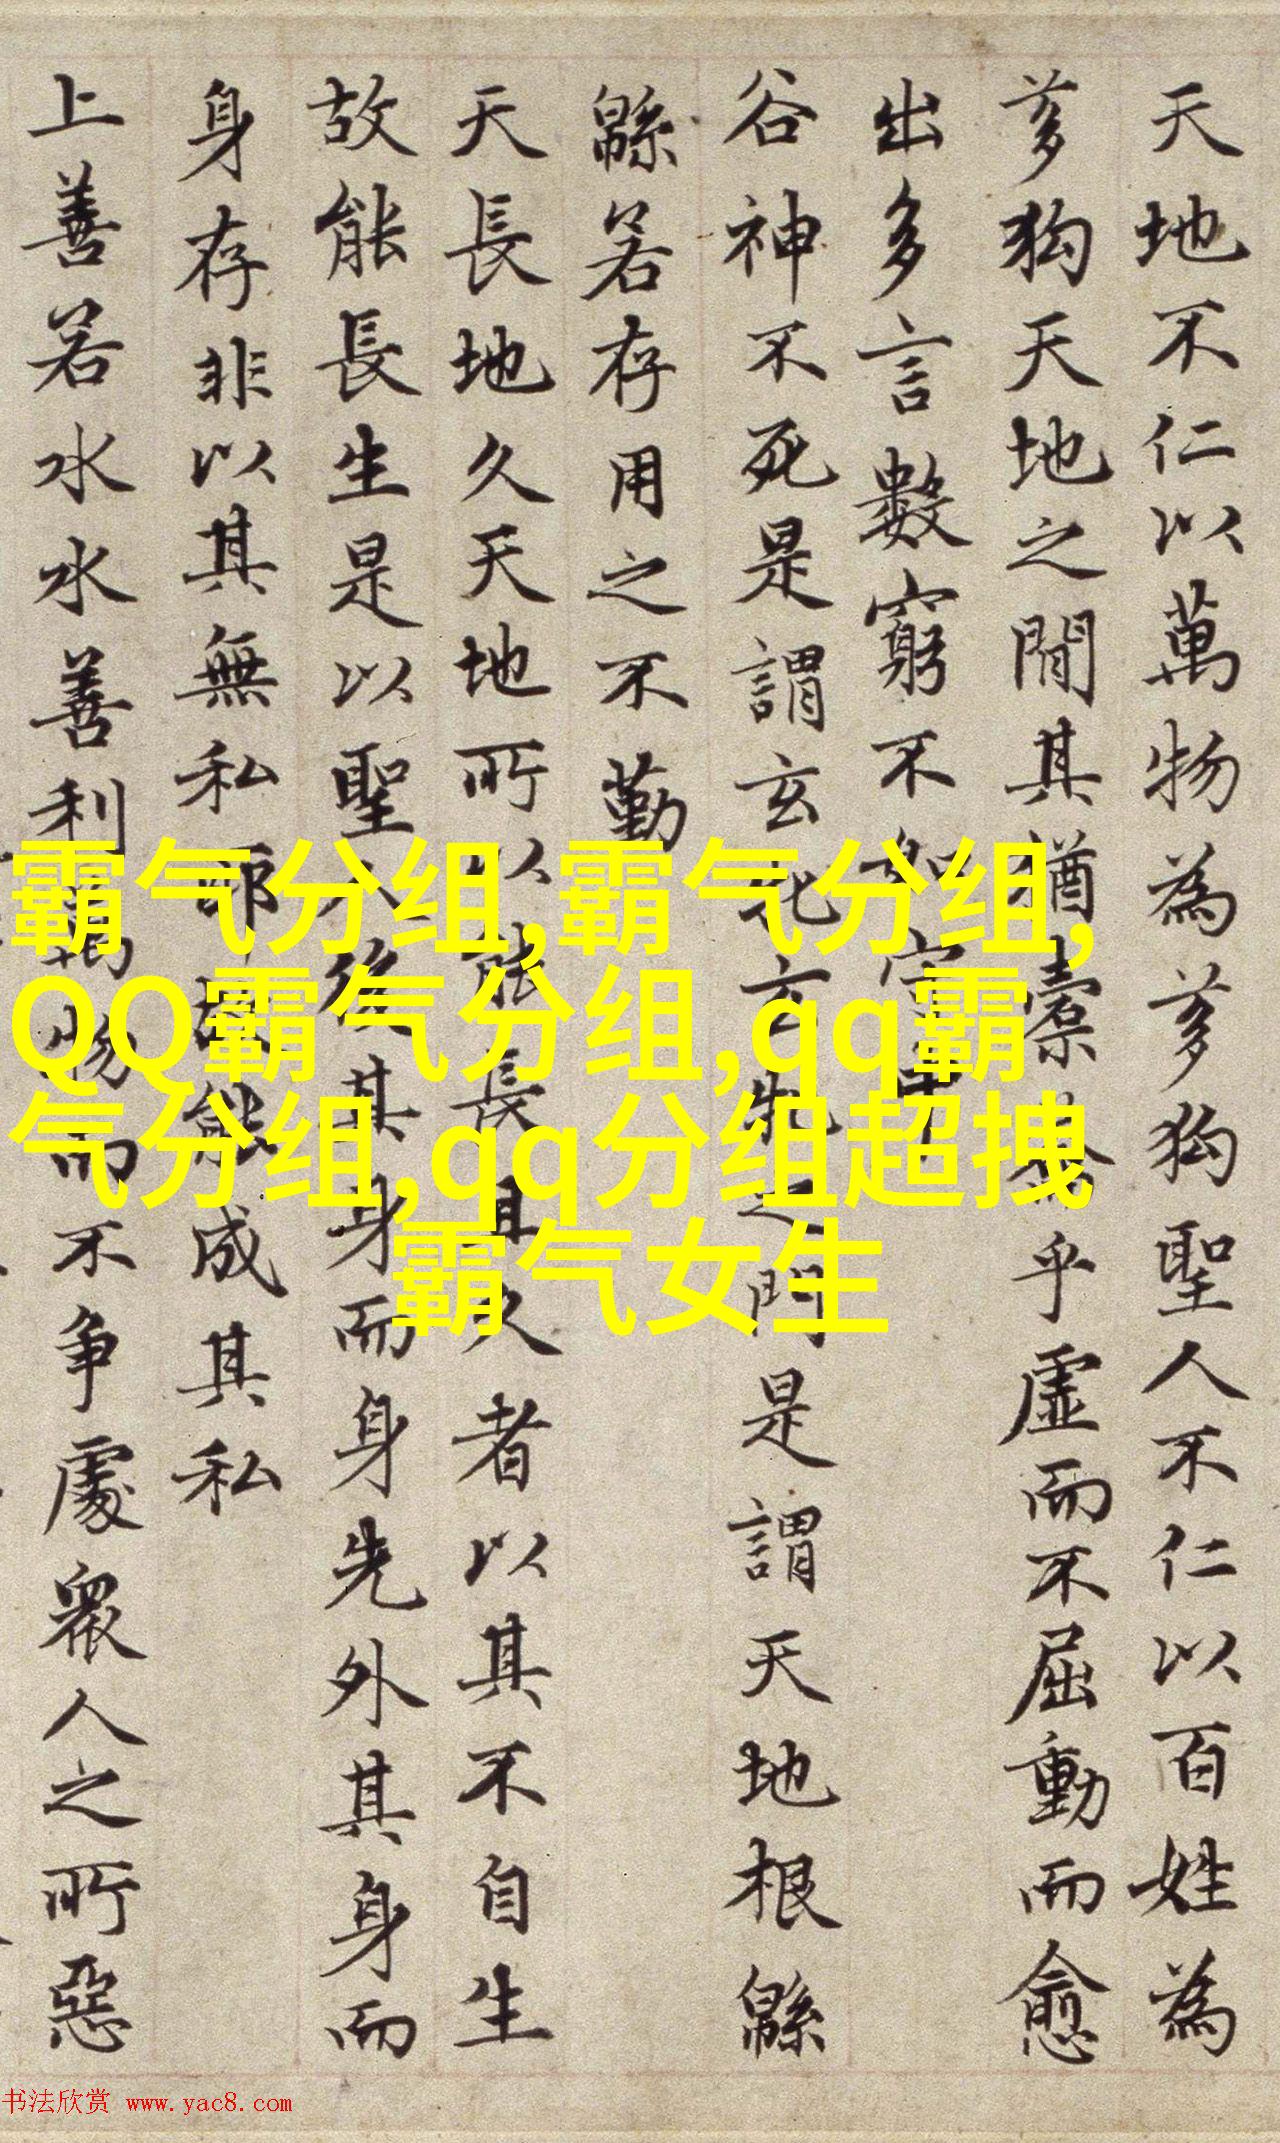 天地不仁以萬物為芻狗聖人不仁以百姓為
芻狗天地之間其猶橐乎虛而不屈動而愈
出多言數窮不如守中
谷神不死是謂玄牝玄牝之門是謂天地根緜
緜若存用之不勤
天長地久天地所以能長且久者以其不自生
故能長生是以聖人後其身而身先外其身而
身存非以其無私邪故能成其私
上善若水水善利萬物而不爭處眾人之所惡
霸气分组,霸气分组,
QQ霸气分组,qq霸
气分组,qq分组超拽
霸气女生
书法欣赏 www.yac8.com